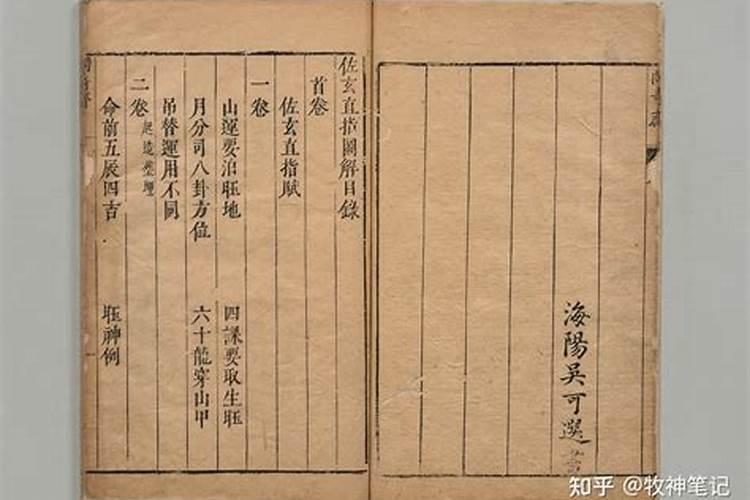 海陽吳可選
佐玄直指圖解目錄
首卷
佐玄直指賦
一卷
山運要泊旺地 四課要取生旺
月分司八卦方位 六十龍穿山甲
吊替運用不同
二卷 起造塟埋
命前五辰四吉 旺神例
知乎 @牧神笔记